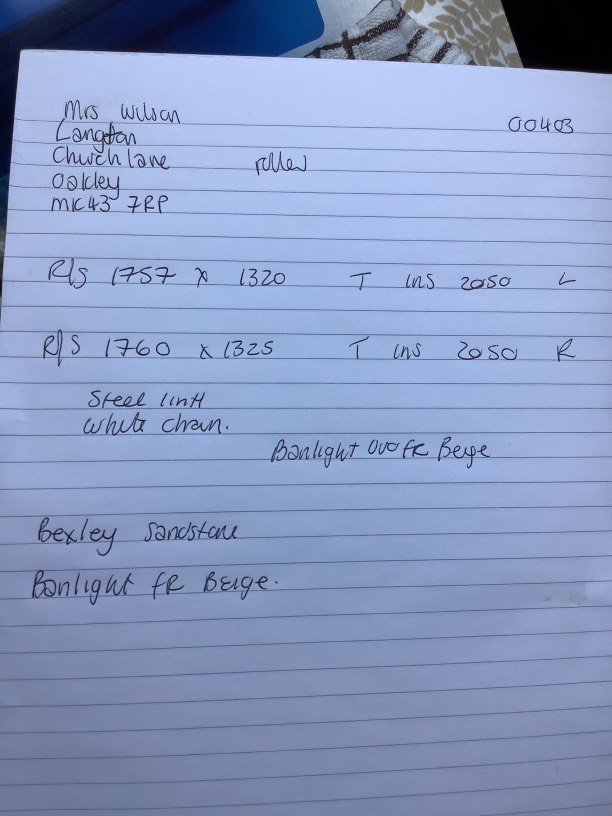 Mrs Wilson
00403
Langton
Church lane roller
Oakley
MK43 7RP
R/S 1757 x 1320 T ins 2050 L
R/S 1760 x 1325 T ins 2050 R
Steel lintl
White chain.
Banlight Duo FR Beige
Bexley Sandstone
Banlight FR Beige.